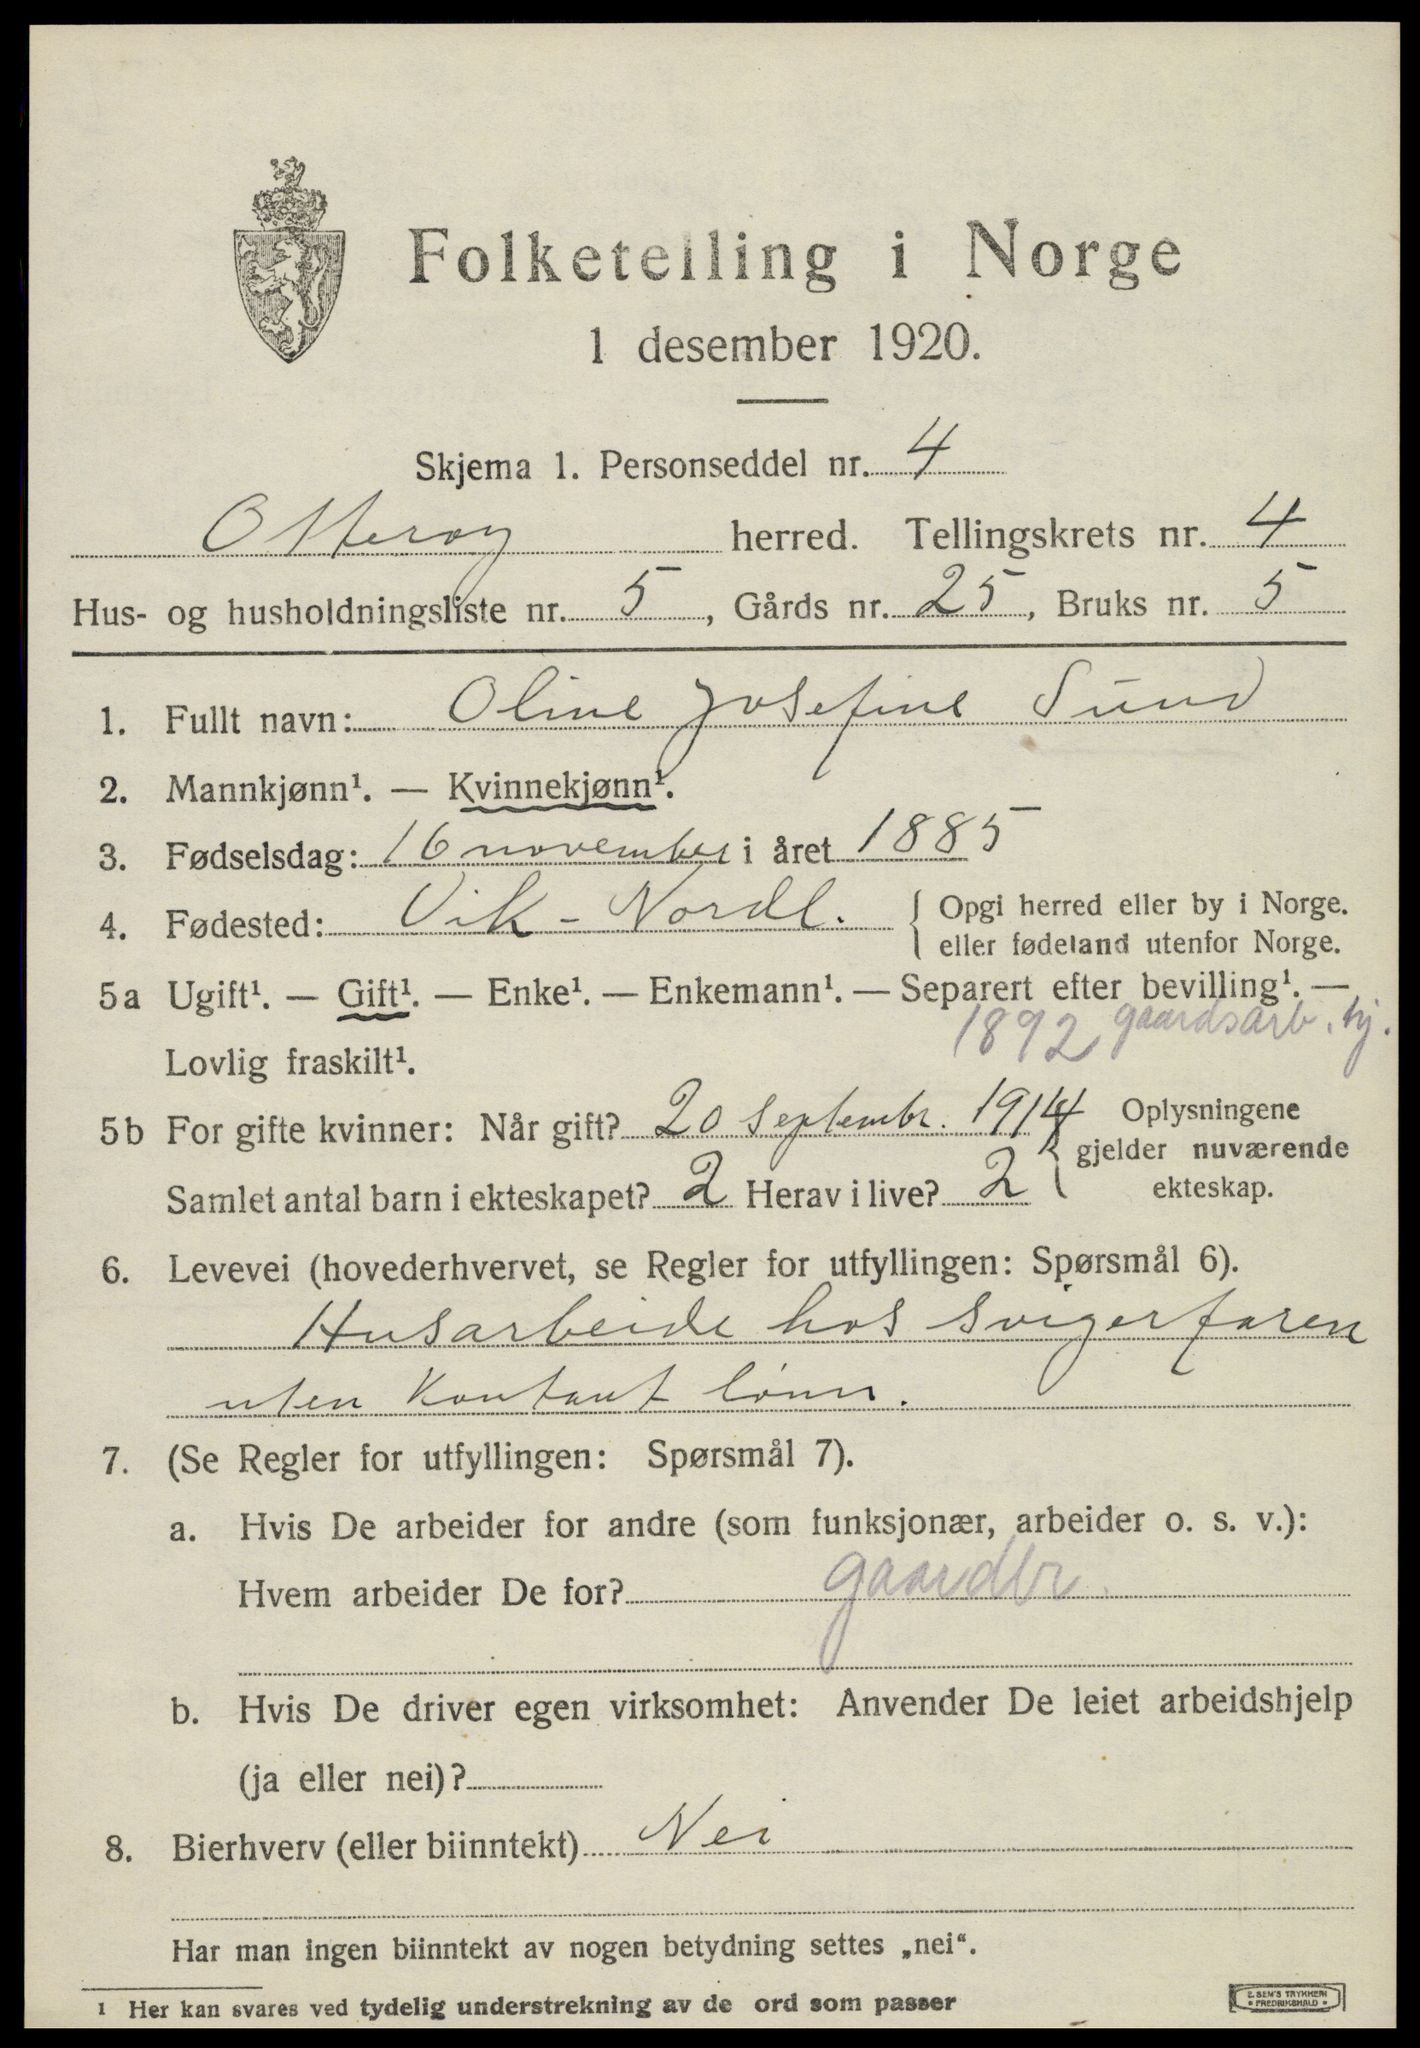 Folketelling i Norge
1 desember 1920.
Skjema 1. Personseddel nr. 4
Otterøy herred. Tellingskrets nr. 4
Hus- og husholdningsliste nr. 5, Gårds nr. 25, Bruks nr. 5
1. Fullt navn: Oline Josefine Sund
2. Mannkjønn¹. — Kvinnekjønn¹.
3. Fødselsdag: 16 november i året 1885
4. Fødested: Vik - Nordl. { Opgi herred eller by i Norge.
eller fødeland utenfor Norge.
5a Ugift¹. — Gift¹. — Enke¹. — Enkemann¹. — Separert efter bevilling¹. —
1892 gaardsarb. tj.
Lovlig fraskilt¹.
5b For gifte kvinner: Når gift? 20 septembr. 1914 { Oplysningene
gjelder nuværende
Samlet antal barn i ekteskapet? 2 Herav i live? 2 ekteskap.
6. Levevei (hovederhvervet, se Regler for utfyllingen: Spørsmål 6).
Husarbeide hos svigerfaren
uten Kontant lønn.
7. (Se Regler for utfyllingen: Spørsmål 7).
a. Hvis De arbeider for andre (som funksjonær, arbeider o. s. v.):
Hvem arbeider De for? gaardbr.
b. Hvis De driver egen virksomhet: Anvender De leiet arbeidshjelp
(ja eller nei)?
8. Bierhverv (eller biinntekt) Nei
Har man ingen biinntekt av nogen betydning settes „nei“.
1 Her kan svares ved tydelig understrekning av de ord som passer
E. SEM'S TRYKKERI
• FREDRIKSHALD •